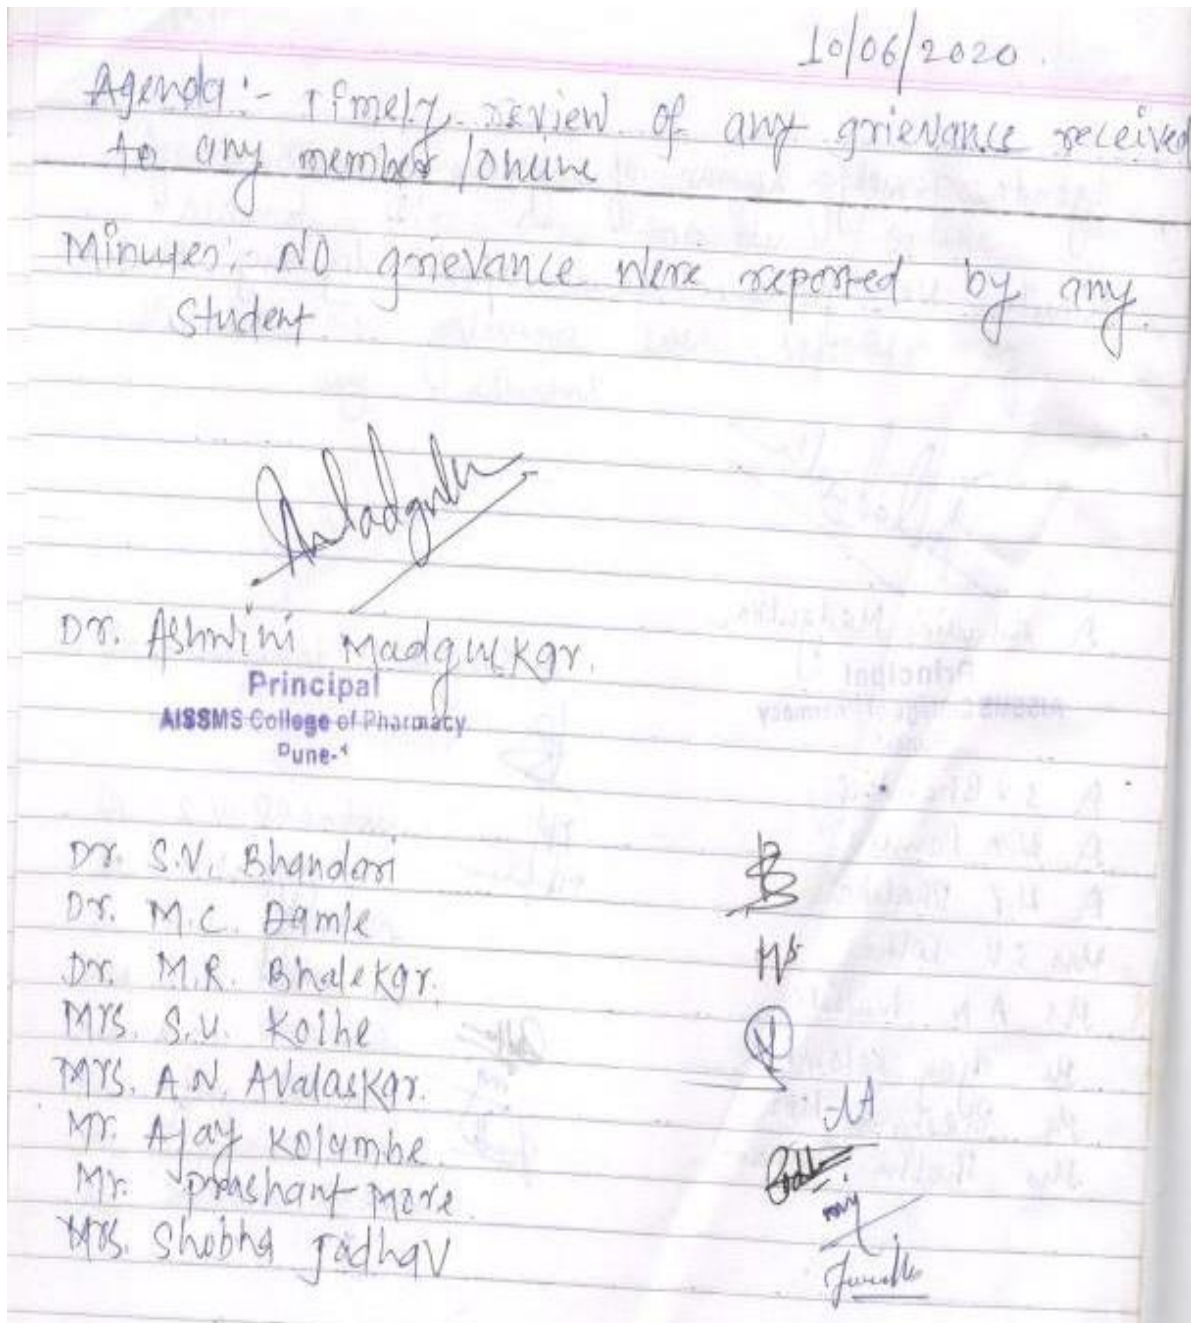 10/06/2020.
Agenda:- Timely review of any grievance received
to any member / Online
Minutes:- NO grievance were reported by any
Student
Dr. Ashwini Madgulkar.
Principal
AISSMS College of Pharmacy
Pune-1
Dr. S.V. Bhandari
Dr. M.C. Damle
Dr. M.R. Bhalekar.
Mrs. S.U. Kolhe
Mrs. A.N. Avalaskar.
Mr. Ajay Kolambe.
Mr. Prashant More
Mrs. Shobha Jadhav